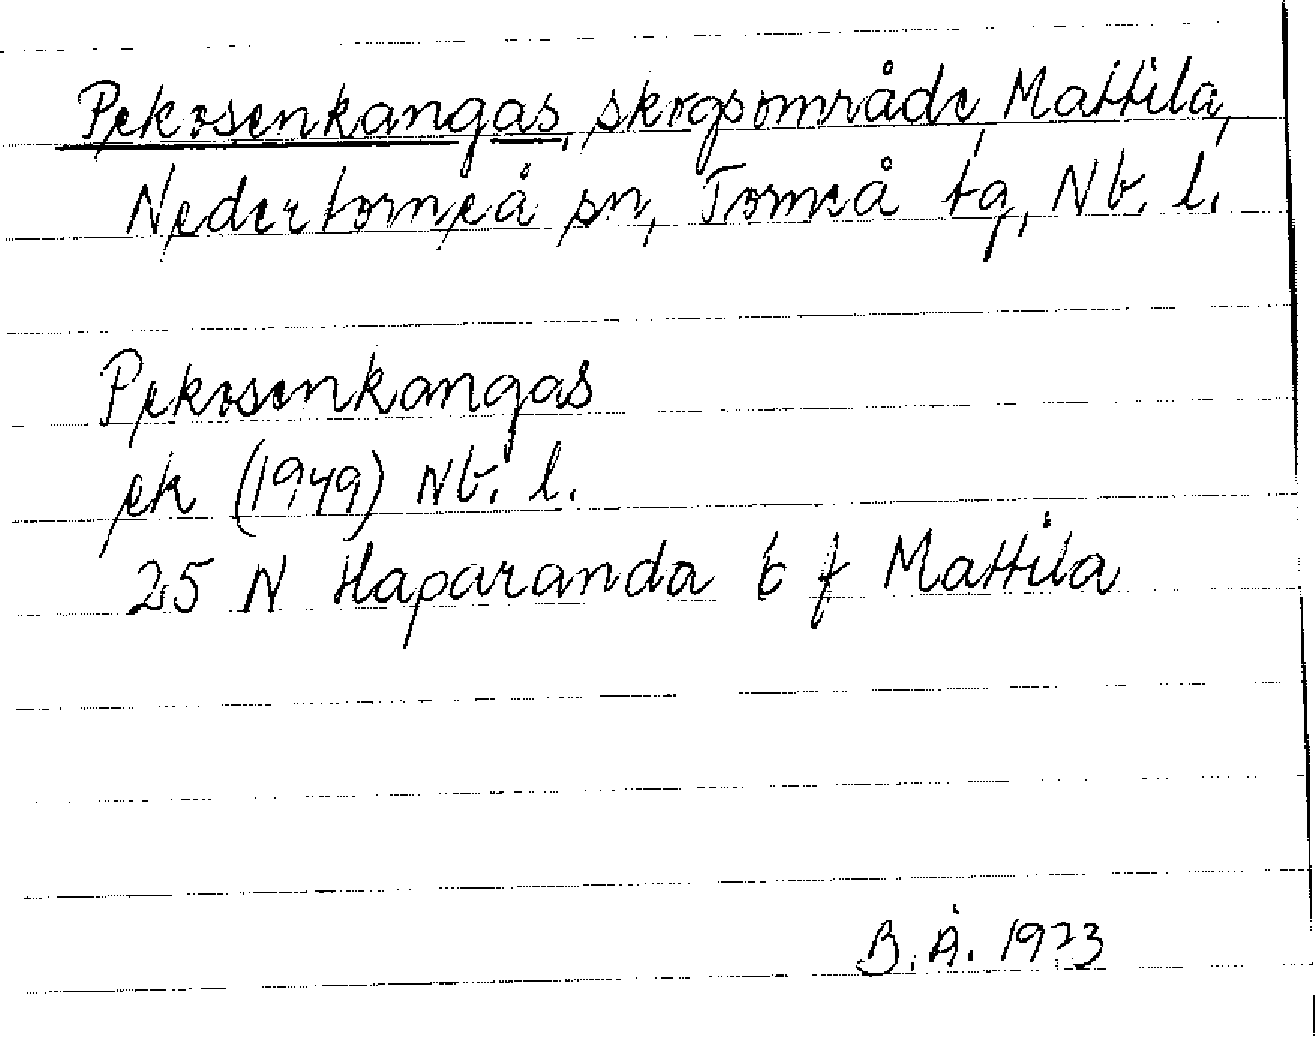 Pekosenkangas, skogsområde, Mattila,
Nedertorneå sn, Torneå tg, Nb. l.
Pekosenkangas
ek (1949) Nb. l.
25 N Haparanda 6 f Mattila
B. Å. 1973